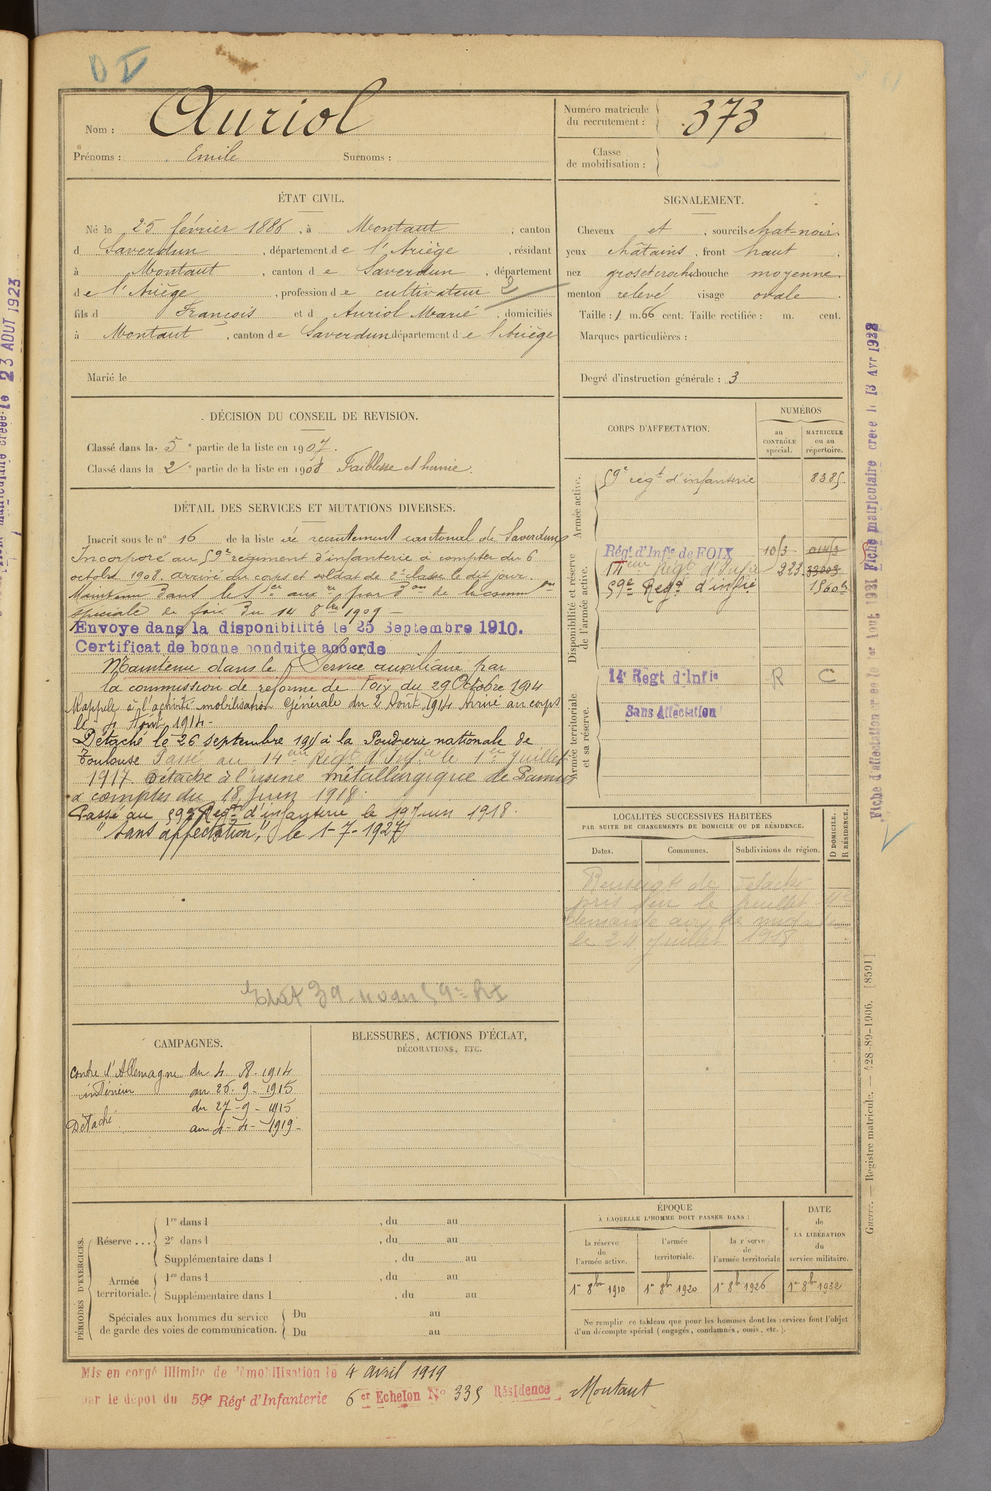 Auriol
Nom :
Prénoms : Emile Surnoms :
Numéro matricule
du recrutement : 373
Classe
de mobilisation :
ÉTAT CIVIL.
Né le 25 février 1886, à Montaut, canton
d Saverdun, département de l'Ariège, résidant
à Montaut, canton de Saverdun, département
de l'Ariège, profession de cultivateur 2
fils d François et d Auriol Marie, domiciliés
à Montaut, canton de Saverdun département de l'Ariège
Marié le
SIGNALEMENT.
Cheveux et , sourcils chat-noir
yeux châtains, front haut
nez gros et croche bouche moyenne
menton relevé visage ovale
Taille : 1 m. 66 cent. Taille rectifiée : m. cent.
Marques particulières :
Degré d'instruction générale : 3
DÉCISION DU CONSEIL DE REVISION.
Classé dans la 5e partie de la liste en 1907.
Classé dans la 2e partie de la liste en 1908 Faiblesse et hernie.
DÉTAIL DES SERVICES ET MUTATIONS DIVERSES.
Inscrit sous le n° 16 de la liste de recrutement cantonal de Saverdun
Incorporé au 59e régiment d'infanterie à compter du 6
octobre 1908, arrivé au corps et soldat de 2e classe le dit jour.
Maintenu dans le Sce auxre par don de la common
spéciale de foix du 14 8bre 1909 -
Envoyé dans la disponibilité le 25 Septembre 1910.
Certificat de bonne conduite accordé
Maintenu dans le Service auxiliaire par
la commission de reforme de Foix du 29 Octobre 1914
Rappelé à l'activité mobilisation Générale du 2 Août 1914 Arrivé au corps
le 4 Août 1914 -
Détaché le 26 septembre 1915 à la Poudrerie nationale de
Toulouse Passé au 14eme Regt d'Infrie le 1er Juillet
1917. Détaché à l'usine métallurgique de Pamiers
à compter du 18 Juin 1918.
Passé au 59e Regt d'infanterie le 19 Juin 1918.
"Sans affectation," le 1-7-1927
59e RI
CORPS D'AFFECTATION.
NUMÉROS
au
CONTRÔLE
spécial.
MATRICULE
ou au
répertoire.
Armée active.
59e régt d'infanterie 8385
Disponibilité et réserve
de l'armée active.
Régt d'Infie de FOIX 10/3
14eme Regt d'Infie 223
59e Regt d'infie
Armée territoriale
et sa réserve.
14e Régt d'Infie R C
Sans Affectation
LOCALITÉS SUCCESSIVES HABITÉES
PAR SUITE DE CHANGEMENTS DE DOMICILE OU DE RÉSIDENCE.
Dates. Communes. Subdivisions de région. D DOMICILE. R RÉSIDENCE.
le 24 juillet 1918
CAMPAGNES.
Contre l'Allemagne du 4. 8. 1914
intérieur au 26. 9 - 1915
du 27 - 9 - 1915
Détaché au 4 - 4 - 1919 -
BLESSURES, ACTIONS D'ÉCLAT,
DÉCORATIONS, ETC.
PÉRIODES D'EXERCICES.
Réserve ...
1re dans l , du au
2e dans l , du au
Supplémentaire dans l , du au
Armée
territoriale.
1re dans l , du au
Supplémentaire dans l , du au
Spéciales aux hommes du service
de garde des voies de communication.
Du au
Du au
ÉPOQUE
À LAQUELLE L'HOMME DOIT PASSER DANS :
la réserve
de
l'armée active.
l'armée
territoriale.
la réserve
de
l'armée territoriale
DATE
de
LA LIBÉRATION
du
service militaire.
1er 8bre 1910 1er 8bre 1920 1er 8bre 1926 1er 8bre 1932
Ne remplir ce tableau que pour les hommes dont les services font l'objet
d'un décompte spécial (engagés, condamnés, omis, etc.).
Mis en congé illimité de démobilisation le 4 avril 1919
par le dépôt du 59e Régt d'Infanterie 6er Echelon N° 335 Résidence Montaut
Guerre. — Registre matricule. — 428-89-1906. [8591]
Fiche d'affectation créée le 1er Août 1931 Fiche matriculaire créée le 13 Avr 1938
matriculaire créée le 23 AOUT 1923